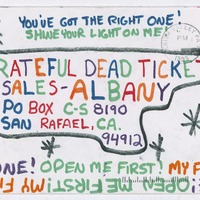 YOU'VE GOT THE RIGHT ONE!
SHINE YOUR LIGHT ON ME!
RATEFUL DEAD TICKE
SALES-ALBANY
PO BOX C-S 8190
SAN RAFAEL, CA.
94912
ONE! OPEN ME FIRST! MY F
OPEN ME FIRST! MY FI